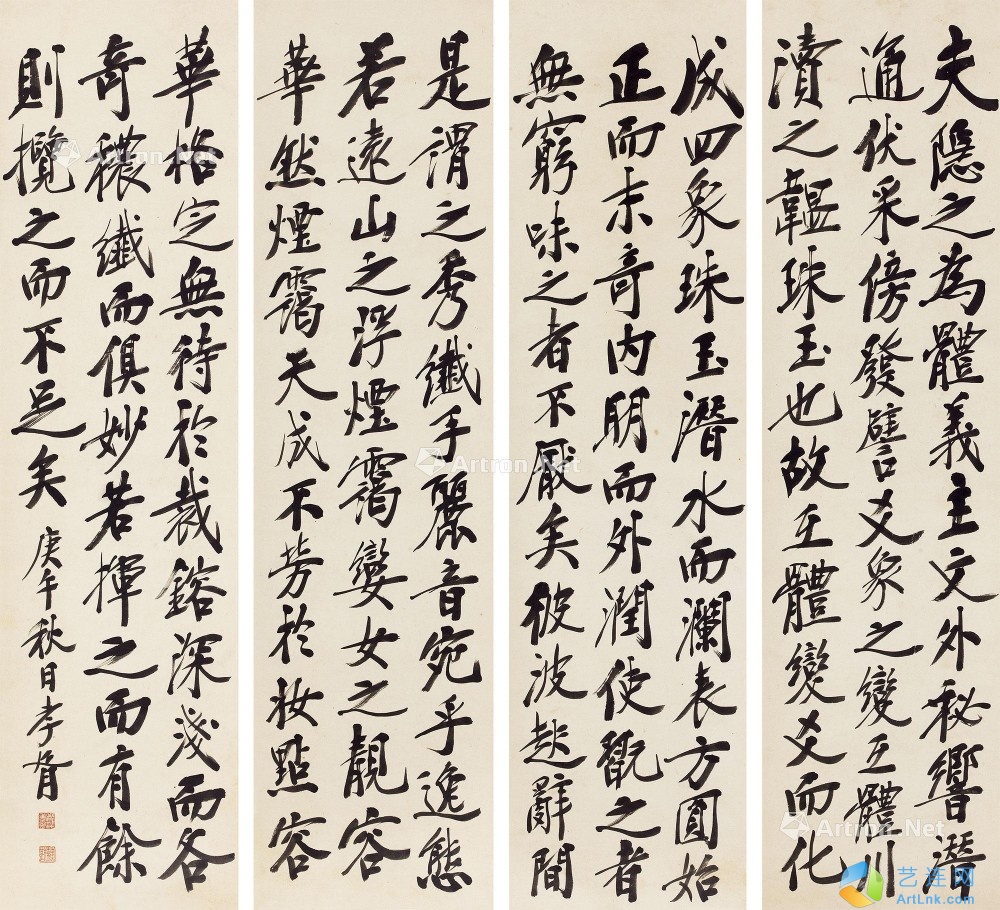 夫隱之為體義主文外秘響潛
通伏采傍發譬爻象之變互體川
瀆之韞珠玉也故互體變爻而化
成四象珠玉潛水而瀾表方圓始
正而末奇內明而外潤使翫之者
無窮味之者不厭矣彼波起辭間
是謂之秀纖手麗音宛乎逸態
若遠山之浮煙靄孌女之靚容
華然煙靄天成不勞於妝點容
華格定無待於裁鎔深淺而各
奇穠纖而俱妙若揮之而有餘
則攬之而不足矣 庚午秋日李
Artron.Net
Artron.Net
Artron.Net
Artron.Net
Artron.Net
艺连网
ArtLnk.com